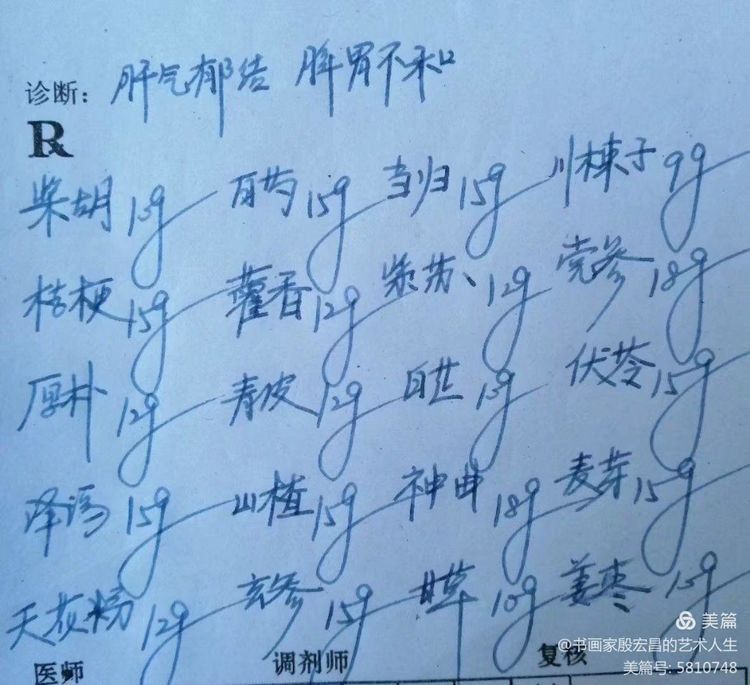 诊断: 肝气郁结 脾胃不和
R
柴胡10g 白芍15g 当归15g 川楝子9g
桔梗15g 藿香12g 紫苏、12g 党参18g
厚朴12g 青皮12g 白芷10g 伏苓15g
泽泻15g 山楂15g 神曲18g 麦芽15g
天花粉12g 玄参15g 甘草10g 姜枣10g
医师 调剂师 复核
美篇
@书画家殷宏昌的艺术人生
美篇号: 5810748